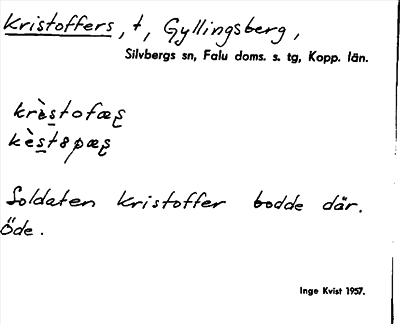 Kristoffers, t, Gyllingsberg,
Silvbergs sn, Falu doms. s. tg, Kopp. län.
krìstofæʂ
kèst8pæʂ
Soldaten Kristoffer bodde där.
Öde.
Inge Kvist 1957.